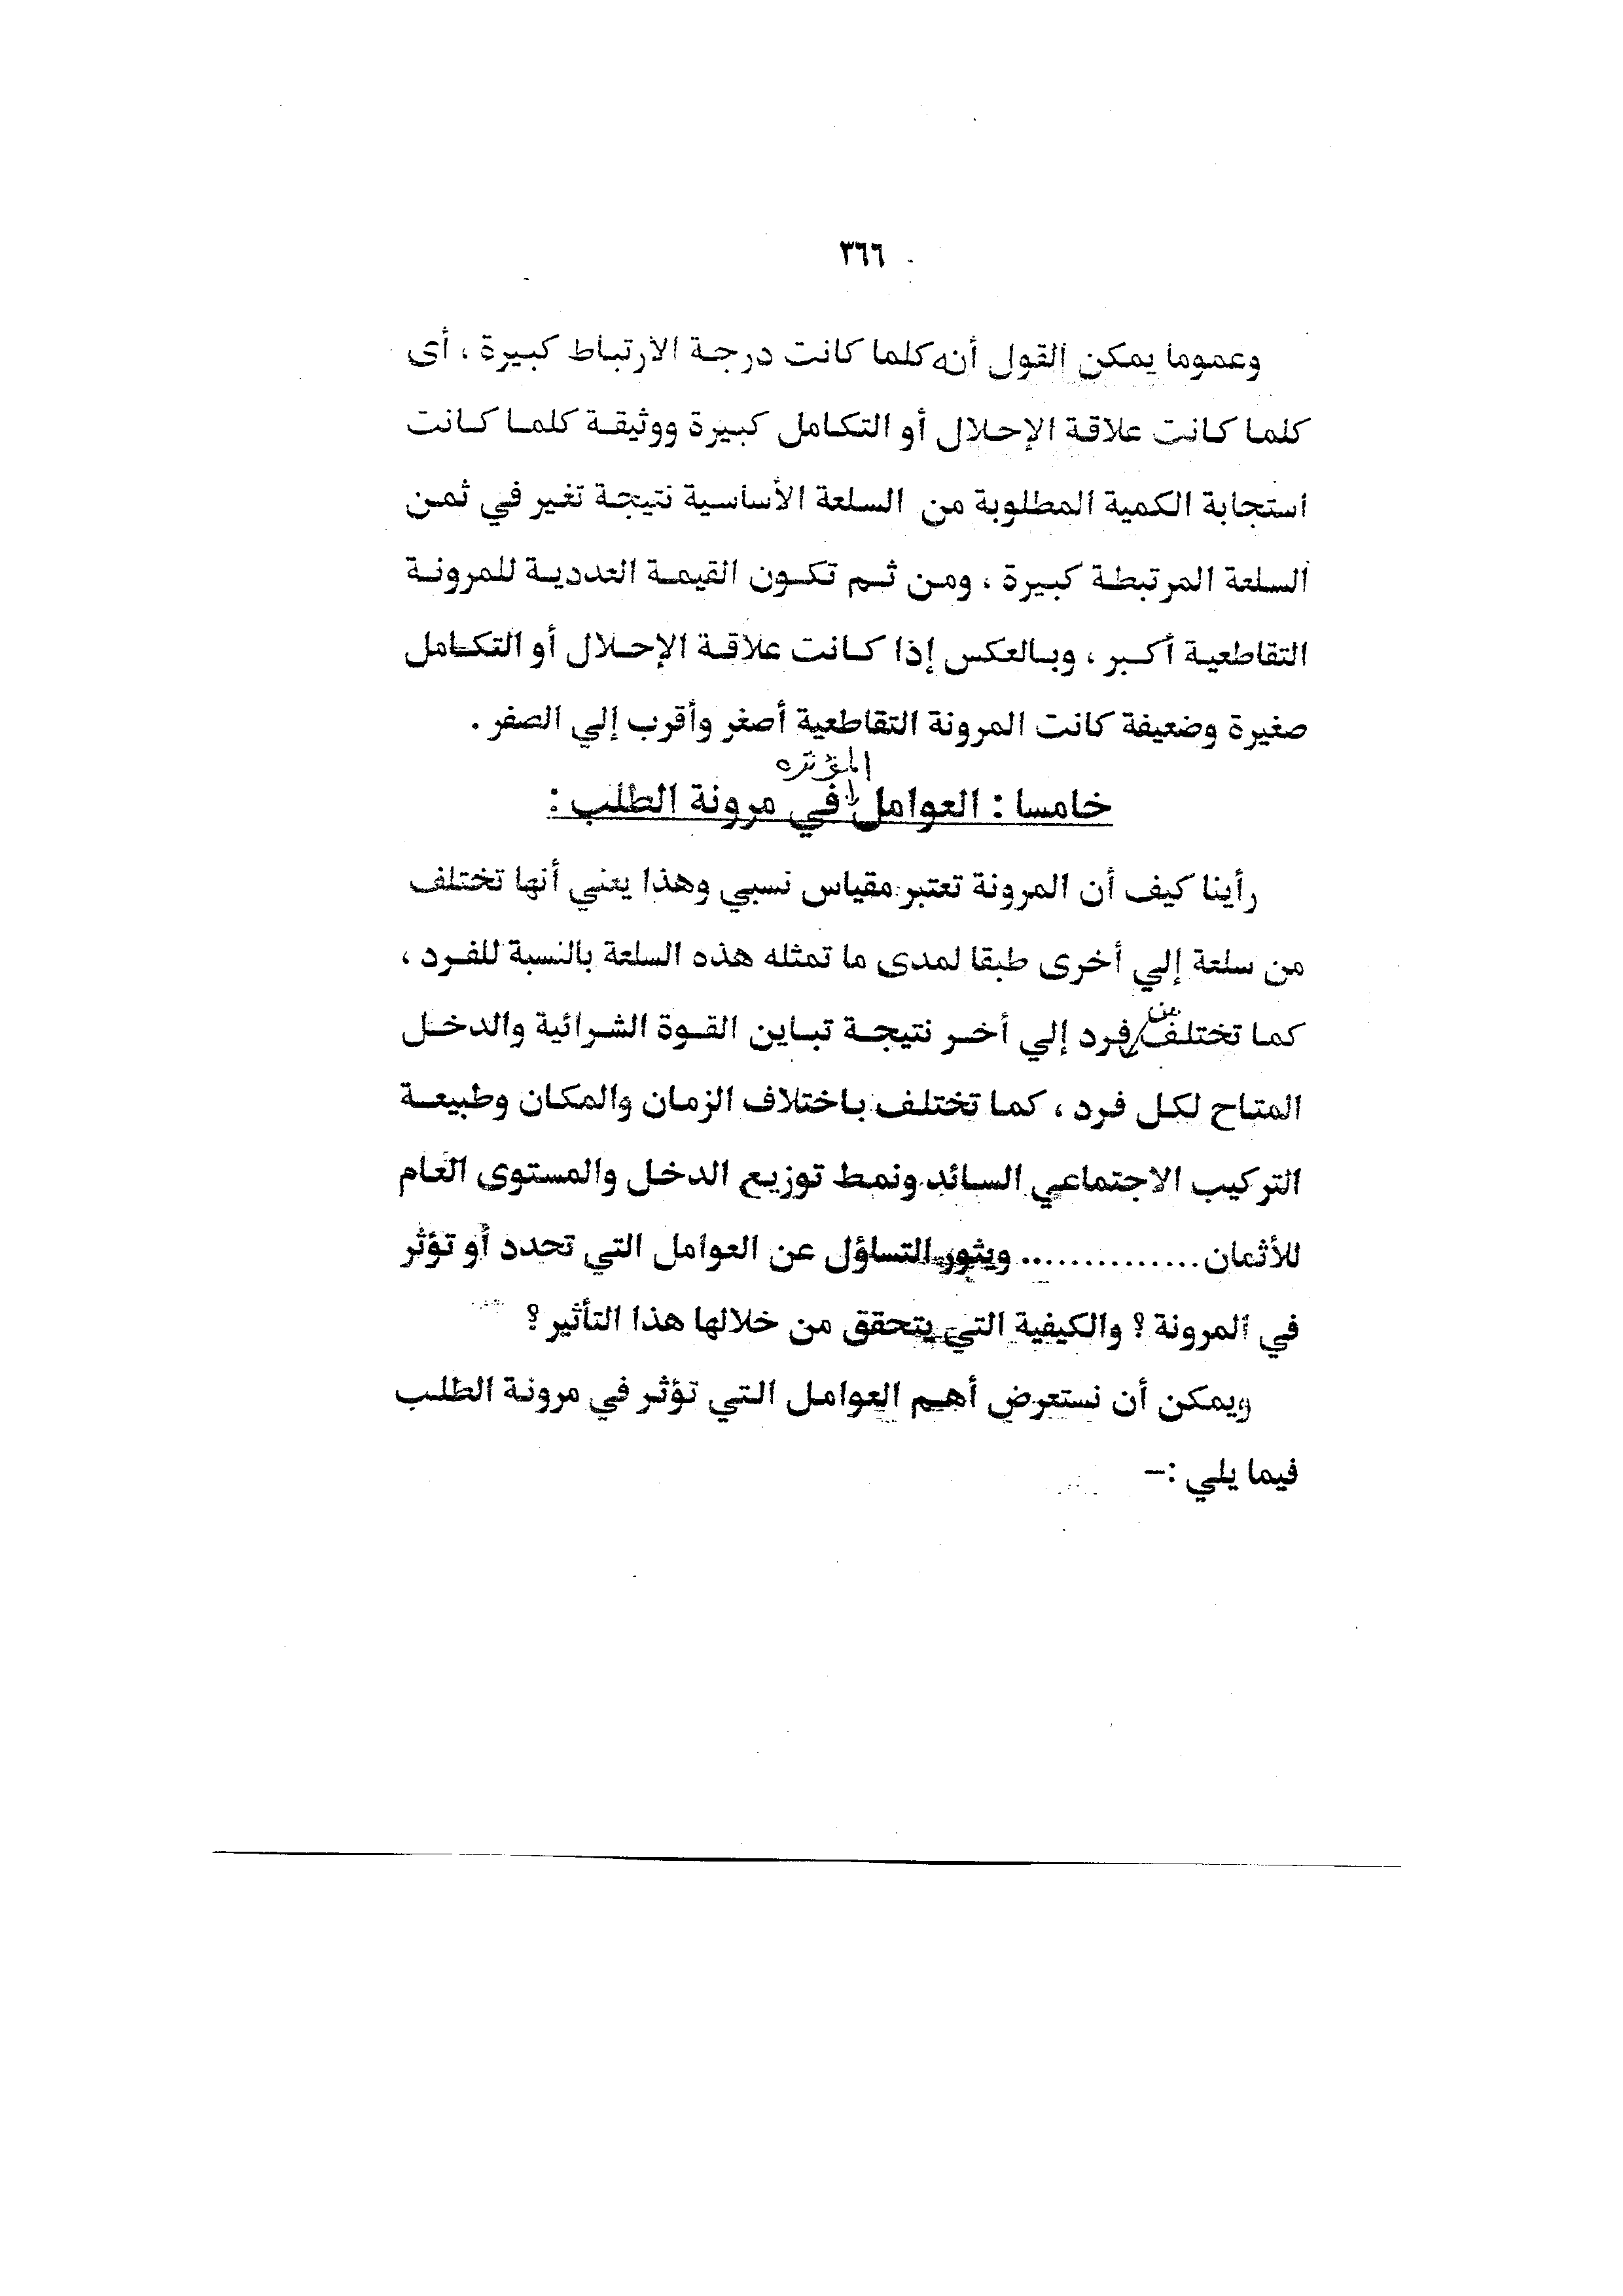 ٣٦٦
وعموما يمكن القول أنه كلما كانت درجة الارتباط كبيرة ، أى
كلما كانت علاقة الإحلال أو التكامل كبيرة ووثيقة كلما كانت
استجابة الكمية المطلوبة من السلعة الأساسية نتيجة تغير في ثمن
السلعة المرتبطة كبيرة ، ومن ثم تكون القيمة العددية للمرونة
التقاطعية أكبر ، وبالعكس إذا كانت علاقة الإحلال أو التكامل
صغيرة وضعيفة كانت المرونة التقاطعية أصغر وأقرب إلي الصفر .
المؤثره
خامسا : العوامل في مرونة الطلب :
رأينا كيف أن المرونة تعتبر مقياس نسبي وهذا يعني أنها تختلف
من سلعة إلي أخرى طبقا لمدى ما تمثله هذه السلعة بالنسبة للفرد ،
من
كما تختلف فرد إلي أخر نتيجة تباين القوة الشرائية والدخل
المتاح لكل فرد ، كما تختلف باختلاف الزمان والمكان وطبيعة
التركيب الاجتماعي السائد ونمط توزيع الدخل والمستوى العام
للأثمان............... ويثور التساؤل عن العوامل التي تحدد أو تؤثر
في المرونة ؟ والكيفية التي يتحقق من خلالها هذا التأثير ؟
ويمكن أن نستعرض أهم العوامل التي تؤثر في مرونة الطلب
فيما يلي :–